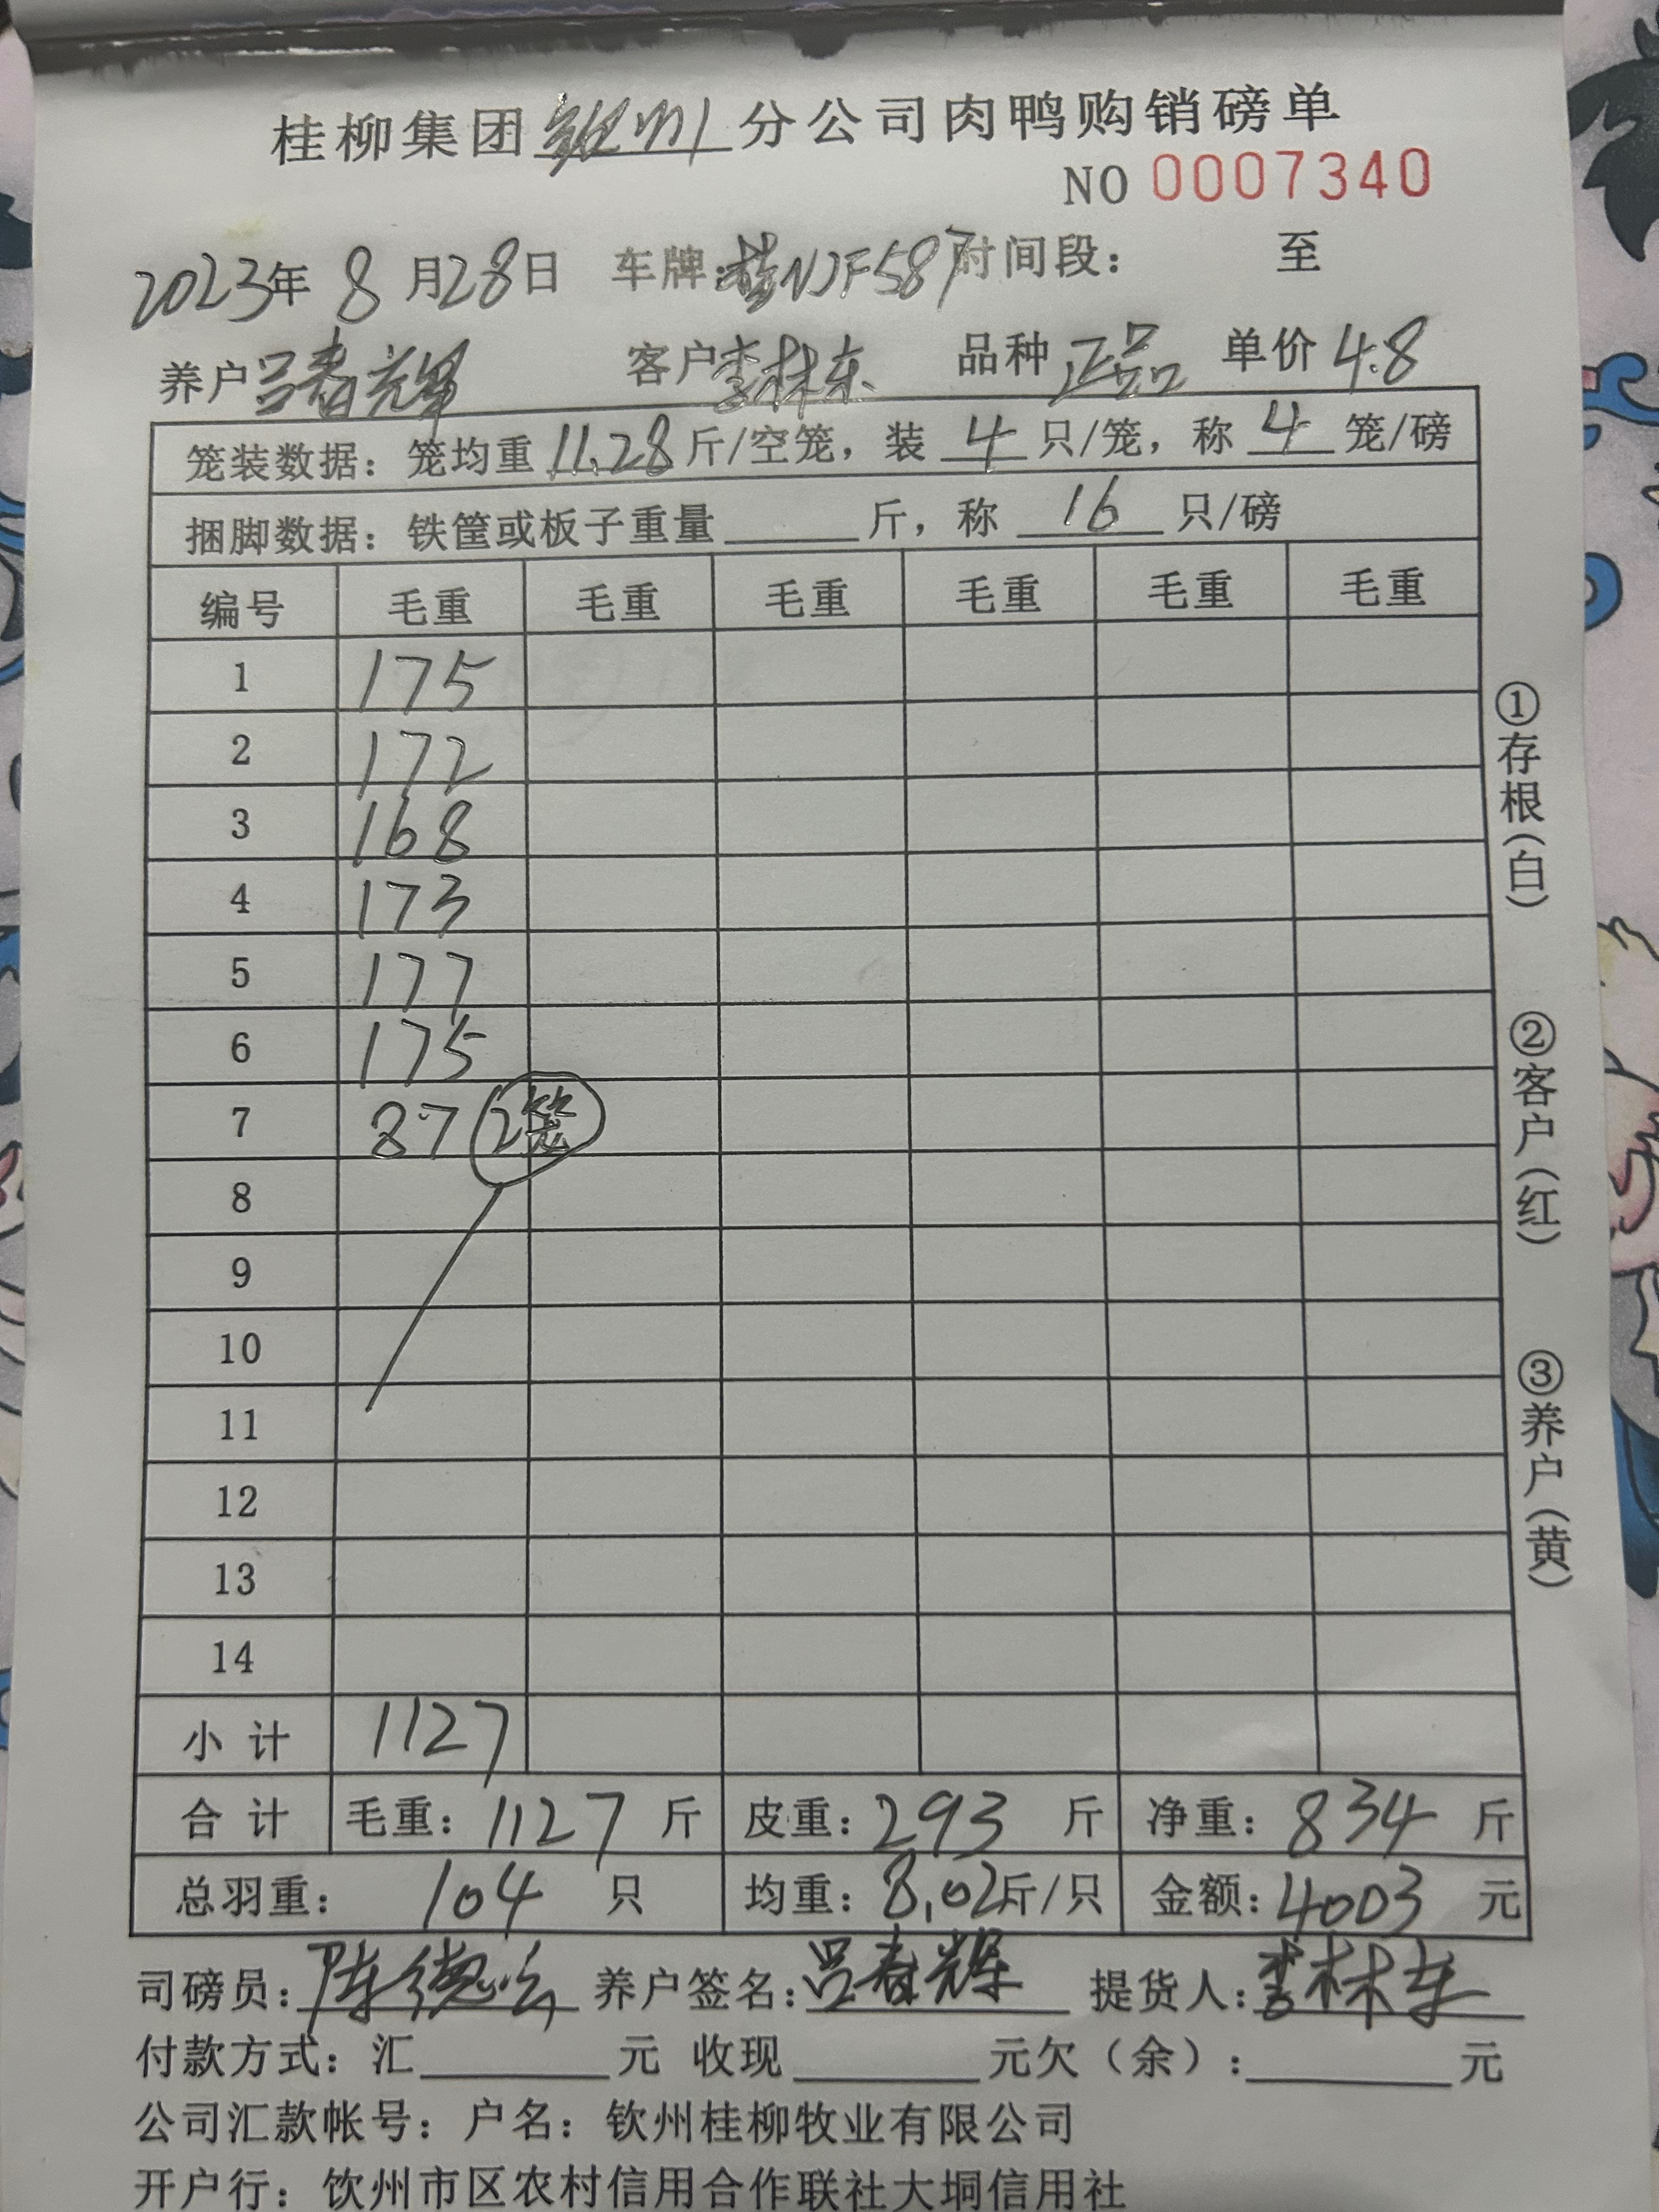 桂柳集团钦州分公司肉鸭购销磅单
NO 0007340
2023年 8 月28日 车牌:桂NJF587时间段: 至
养户吕春辉 客户李林东 品种正品 单价4.8
笼装数据: 笼均重11.28斤/空笼, 装 4 只/笼, 称 4 笼/磅
捆脚数据: 铁筐或板子重量 斤, 称 16 只/磅
编号 毛重 毛重 毛重 毛重 毛重 毛重
1 175
2 172
3 168
4 173
5 177
6 175
7 87 2笼
8
9
10
11
12
13
14
小计 1127
合计 毛重: 1127 斤 皮重: 293 斤 净重: 834 斤
总羽重: 104 只 均重: 8.02斤/只 金额: 4003 元
司磅员: 陈德 养户签名: 吕春辉 提货人: 李林东
付款方式: 汇 元 收现 元欠(余): 元
公司汇款帐号: 户名: 钦州桂柳牧业有限公司
开户行: 饮州市区农村信用合作联社大垌信用社
①存根(白)
②客户(红)
③养户(黄)